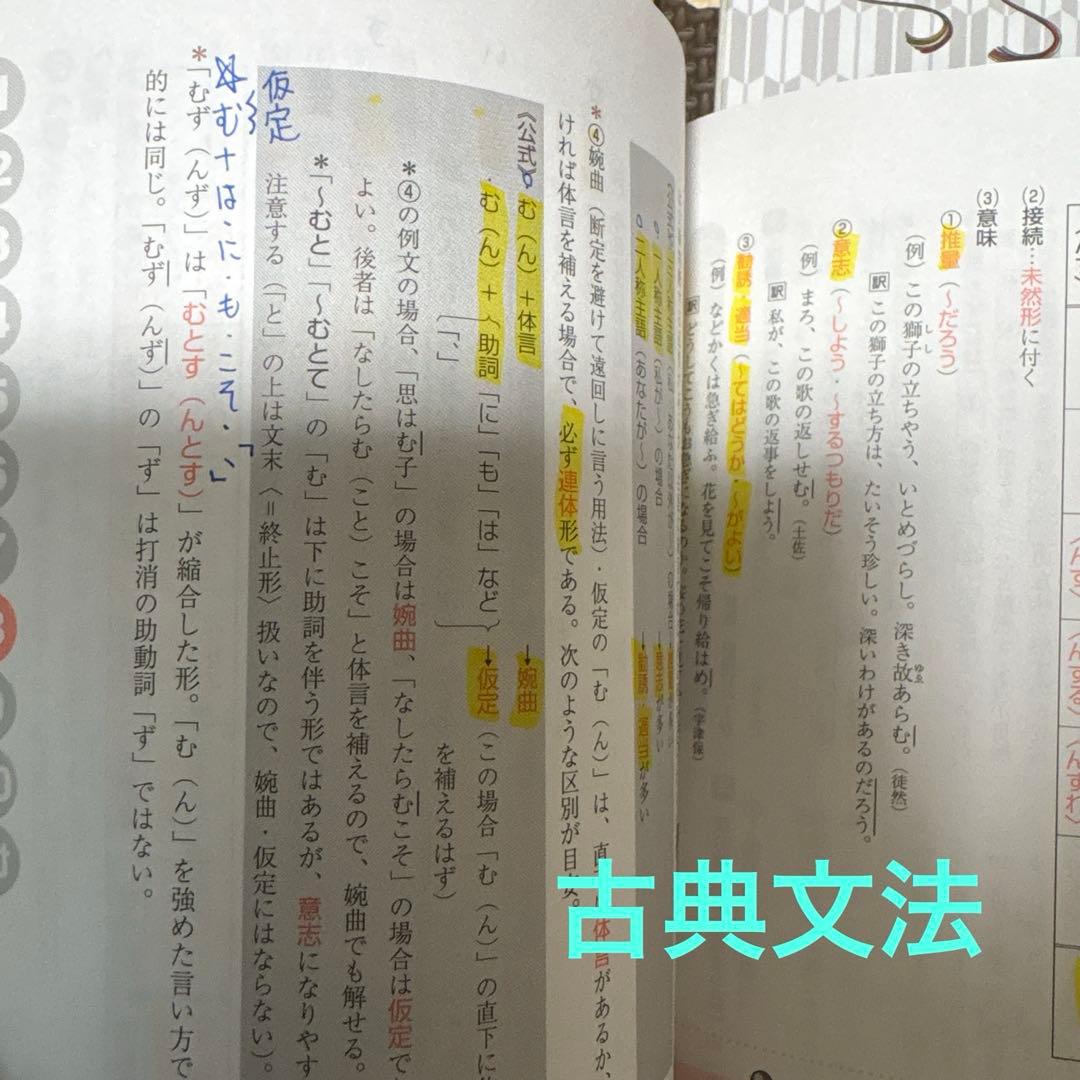 (2) 接続…未然形に付く
(3) 意味
①推量（～だろう）
（例）この獅子の立ちやう、いとめづらし。深き故あらむ。（徒然）
しし
ゆゑ
訳 この獅子の立ち方は、たいそう珍しい。深いわけがあるのだろう。
②意志（～しよう・～するつもりだ）
（例）まろ、この歌の返しせむ。（土佐）
訳 私が、この歌の返事をしよう。
③勧誘・適当（～てはどうか・～がよい）
（例）などかくは急ぎ給ふ。花を見てこそ帰り給はめ。（宇津保）
訳 どうしてこうもお急ぎになるのか。
一人称主語（私が～）の場合 →意志が多い
二人称主語（あなたが～）の場合 →勧誘・適当が多い
*④婉曲（断定を避けて遠回しに言う用法）・仮定の「む（ん）」は、直下に体言があるか、
ければ体言を補える場合で、必ず連体形である。次のような区別が目安。
《公式》む（ん）＋体言 →婉曲
む（ん）＋助詞「に」「も」「は」など →仮定（この場合「む（ん）」の直下に
「、」
を補えるはず）
*④の例文の場合、「思はむ子」の場合は婉曲、「なしたらむこそ」の場合は仮定で
よい。後者は「なしたらむ（こと）こそ」と体言を補えるので、婉曲でも解せる。
*「～むと」「～むとて」の「む」は下に助詞を伴う形ではあるが、意志になりやす
注意する（「と」の上は文末〈＝終止形〉扱いなので、婉曲・仮定にはならない）。
仮定
☆む＋は・に・も・こそ・「、」
*「むず（んず）」は「むとす（んとす）」が縮合した形。「む（ん）」を強めた言い方で
的には同じ。「むず（んず）」の「ず」は打消の助動詞「ず」ではない。
（んず）
（んずる）
（んずれ）
1
2
3
4
5
6
7
古典文法